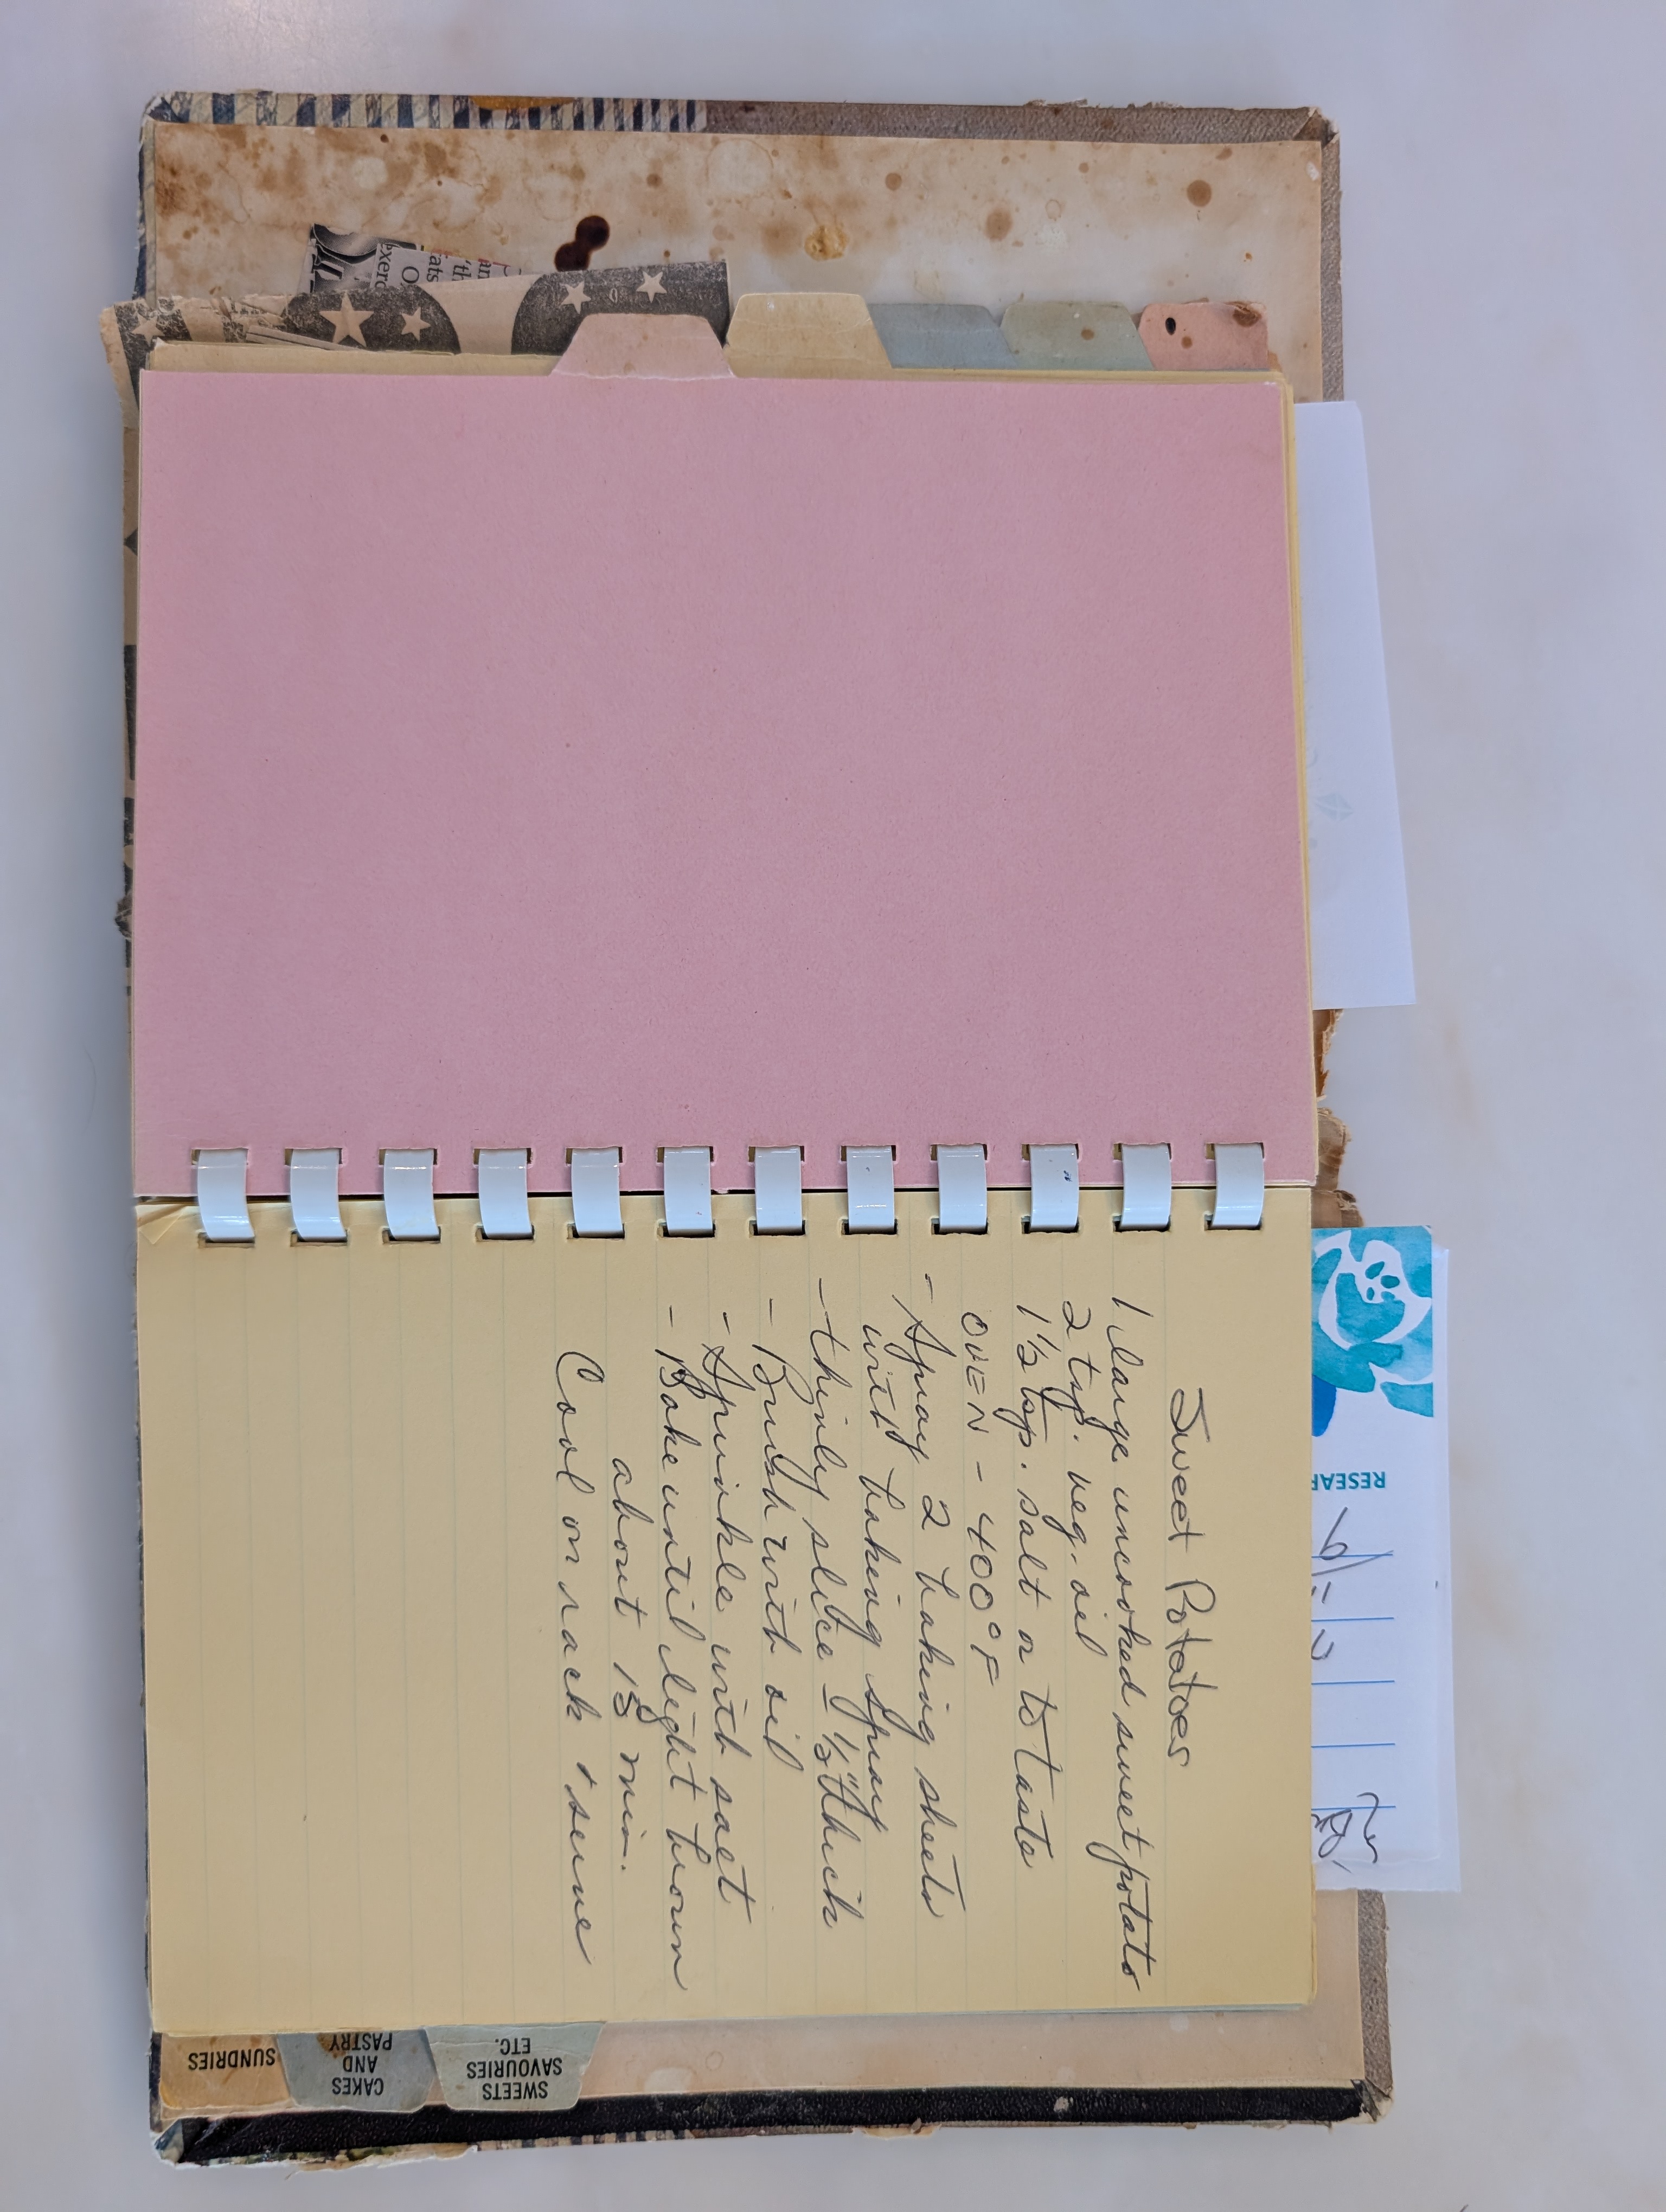 Sweet Potatoes
1 large uncooked sweet potato
2 tsp. veg. oil
1½ tsp. salt or to taste
OVEN - 400°F
- Spray 2 baking sheets
with baking spray
- thinly slice - ½" thick
- Brush with oil
- Sprinkle with salt
- Bake until light brown
about 18 min.
Cool on rack + serve
SWEETS
SAVOURIES
ETC.
CAKES
AND
PASTRY
SUNDRIES
RESEAR